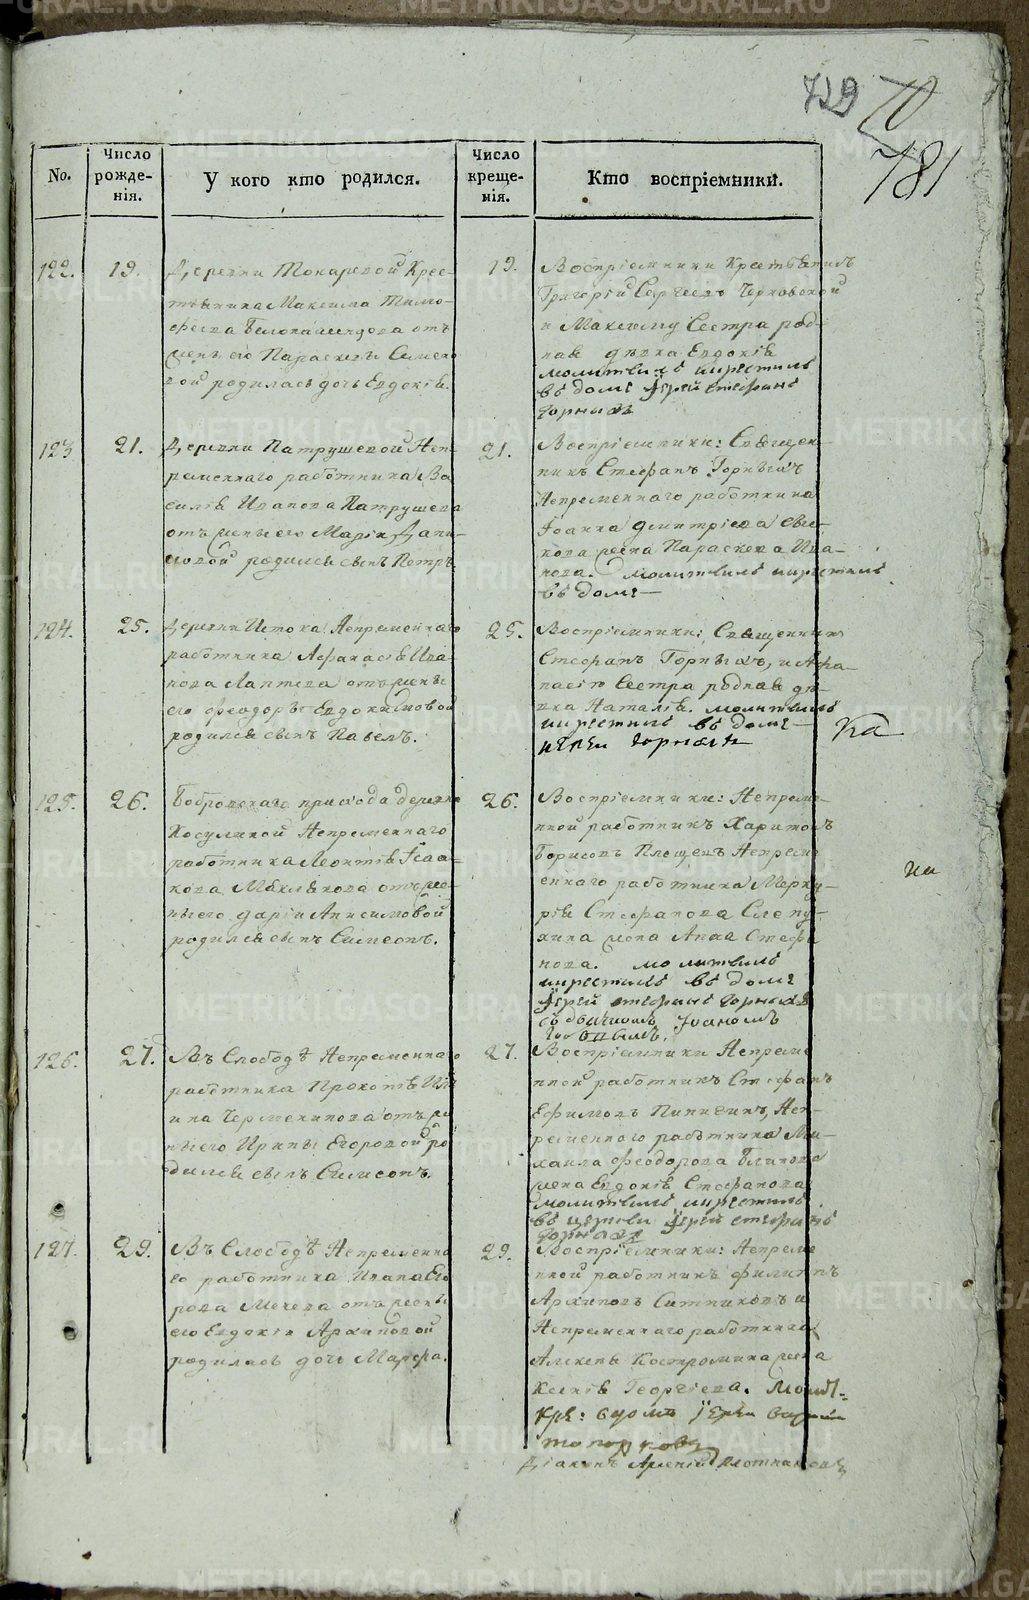 METRIKI.GASO-URAL.RU
729
70
781
No.
Число рожде-нія.
У кого кто родился.
Число креще-нія.
Кто воспріемники.
122.
19.
Деревни Токаревой Крес-
тьянина Максима Тимо-
феева отъ
жены его Параскевы Симео
вой родилась дочь Евдокія.
19.
Воспріемники Крестьянинъ
Григорій Сергеевъ
и Максиму Сестра род-
ная дѣвка Евдокія
молитвилъ икрестилъ
въ доме Іерей стефанъ
горныхъ
123
21.
Деревни Патрушевой Неп-
ременнаго работника Ва
силія Иванова Патрушева
отъ жены его Маріи Дани-
ловой родился сынъ Петръ
21.
Воспріемники: Священ-
никъ Стефанъ Горныхъ
Непременнаго работника
Іоанна Дмитріева
жена Параскева Ива-
нова. молитвилъ икрестилъ
въ доме
124.
25.
Деревни Истока Непременнаго
работника Афанасія Ива-
нова Лаптева отъ жены
его Феодоры Евдокимовой
родился сынъ Павелъ.
25.
Воспріемники: Священникъ
Стефанъ Горныхъ, и Афа-
насію Сестра родная дѣ-
вка Наталія. молитвилъ
икрестилъ въ доме
іерей горныхъ
Ка
125.
26.
Бобровскаго прихода деревни
Косулиной Непременнаго
работника Леонтія Ісаа-
кова отъ же-
ны его Даріи Анисимовой
родился сынъ Симеонъ.
26.
Воспріемники: Непреме-
нной работникъ Харитонъ
Борисовъ Плещевъ Непреме
ннаго работника Мерку-
рія Стефанова Слепу-
хина жена Анна Стефа
нова. молитвилъ
икрестилъ въ доме
Іерей стефанъ горныхъ
Іоаномъ
126.
27.
Въ Слободѣ Непременнаго
работника Прокопія Иль
ина отъ же
ны его Ирины Егоровой ро
дился сынъ Симеонъ.
27.
Воспріемники Непреме
нной работникъ Стефанъ
Ефимовъ Пинигинъ, Неп-
ременного работника Ми-
хаила Феодорова
жена Евдокія Стефанова
молитвилъ икрестилъ
въ церкви Іерей стефанъ
горныхъ
127.
29.
Въ Слободѣ Непременна
го работника Ивана Его
рова отъ жены
его Евдокіи Архиповой
родилась дочь Марфа.
29.
Воспріемники: Непреме
нной работникъ Филиппъ
Архиповъ Ситниковъ и
Непременнаго работника
Алексея Костромина жена
Ксенія Георгіева.
Діаконъ Арсеній Плотниковъ